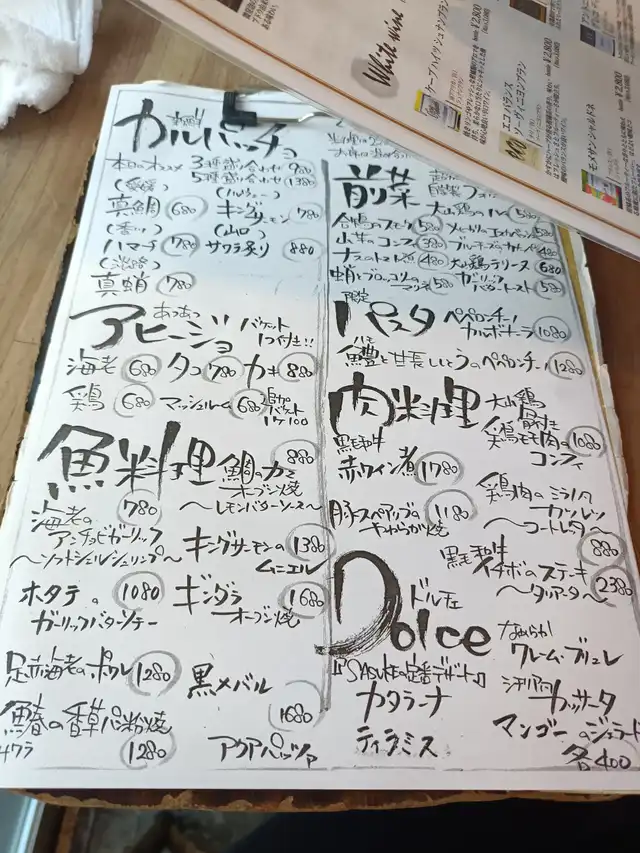 White wine
ケープハイツ シュナンブラン
¥2,800
エコ・バランス
ソーヴィニヨンブラン
¥2,800
モメサン シャルドネ
¥2,800
カルパッチョ
本日のオススメ 3種盛り合わせ 980
5種盛り合わせ 1380
(愛媛)
真鯛 680
キングサーモン 780
(香川)
ハマチ 780
(山口)
サワラ炙り 880
(淡路)
真蛸 780
あつあつ
アヒージョ バケット1つ付き!!
海老 680 タコ 780 カキ 880
鶏 680 マッシュルーム 680 追加バケット1ケ100
魚料理
鯛のカマ 880
オーブン焼
〜レモンバターソース〜
海老の 780
アンチョビガーリック
〜ソフトシェルシュリンプ〜
キングサーモンの 1380
ムニエル
ホタテの 1080
ガーリックバターソテー
ギンダラ 1680
オーブン焼
足赤海老のポワレ 1280
黒メバル
1680
アクアパッツァ
鰆の香草パン粉焼
サワラ
1280
前菜
大山鶏のハム 580
合鴨のスモーク 580
580
山牛のコンフィ 380
480
480
大山鶏テリーヌ 680
蛸とブロッコリーのマリネ 580
ガーリックバタートースト 580
限定
パスタ
ペペロンチーノ
カルボナーラ 1080
ハモ
鱧と甘長しとうのペペロンチーノ 1280
肉料理
大山鶏
骨付き
鶏モモ肉の 1080
コンフィ
黒毛和牛
赤ワイン煮 1780
豚スペアリブの 1180
やわらか焼
鶏肉のミラノ風
カツレツ
〜コートレッタ〜
880
黒毛和牛
イチボのステーキ
〜タリアータ〜
2380
Dolce
ドルチェ
『SASUKEの定番デザート』
カタラーナ
ティラミス
なめらか
クレーム・ブリュレ
シチリア風
カッサータ
マンゴーのジェラート
各400